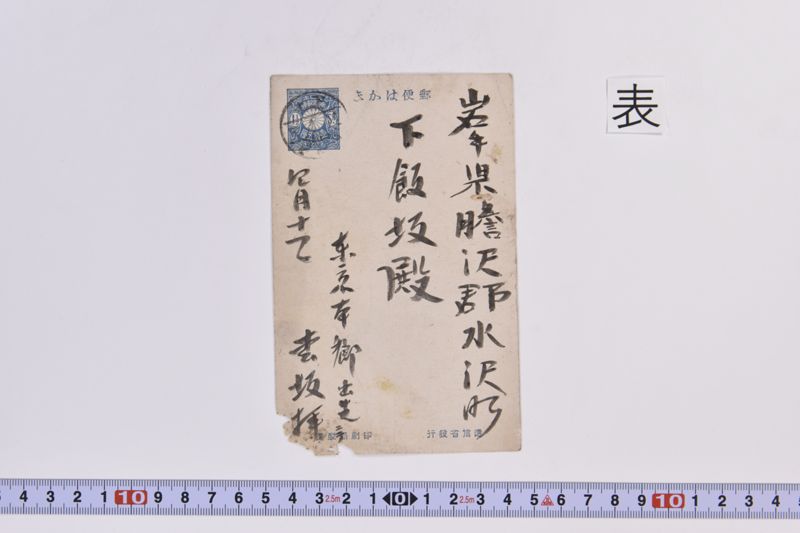 表
郵便はかき
岩手県膽沢郡水沢町
下飯坂殿
東京本郷出先ニ
坂拝
四月十一
逓信省發行
印刷局製造
4 3 2 1 10 9 8 7 6 5 4 3 2.5m 2 1 0 1 2 2.5m 3 4 5 6 7 8 9 10 1 2 3 4